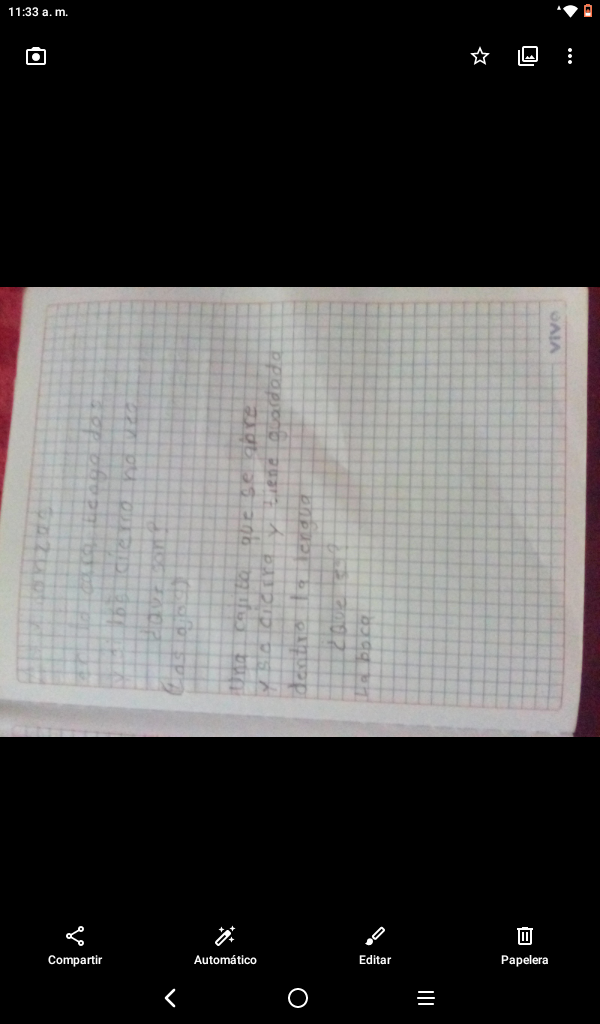 11:33 a. m.
en la cara tengo dos
y si los cierro no veo
¿Que son?
(Los ojos)
Una cajita que se abre
y se cierra y tiene guardada
dentro la lengua
¿Que es?
La boca
VIVO
Compartir
Automático
Editar
Papelera